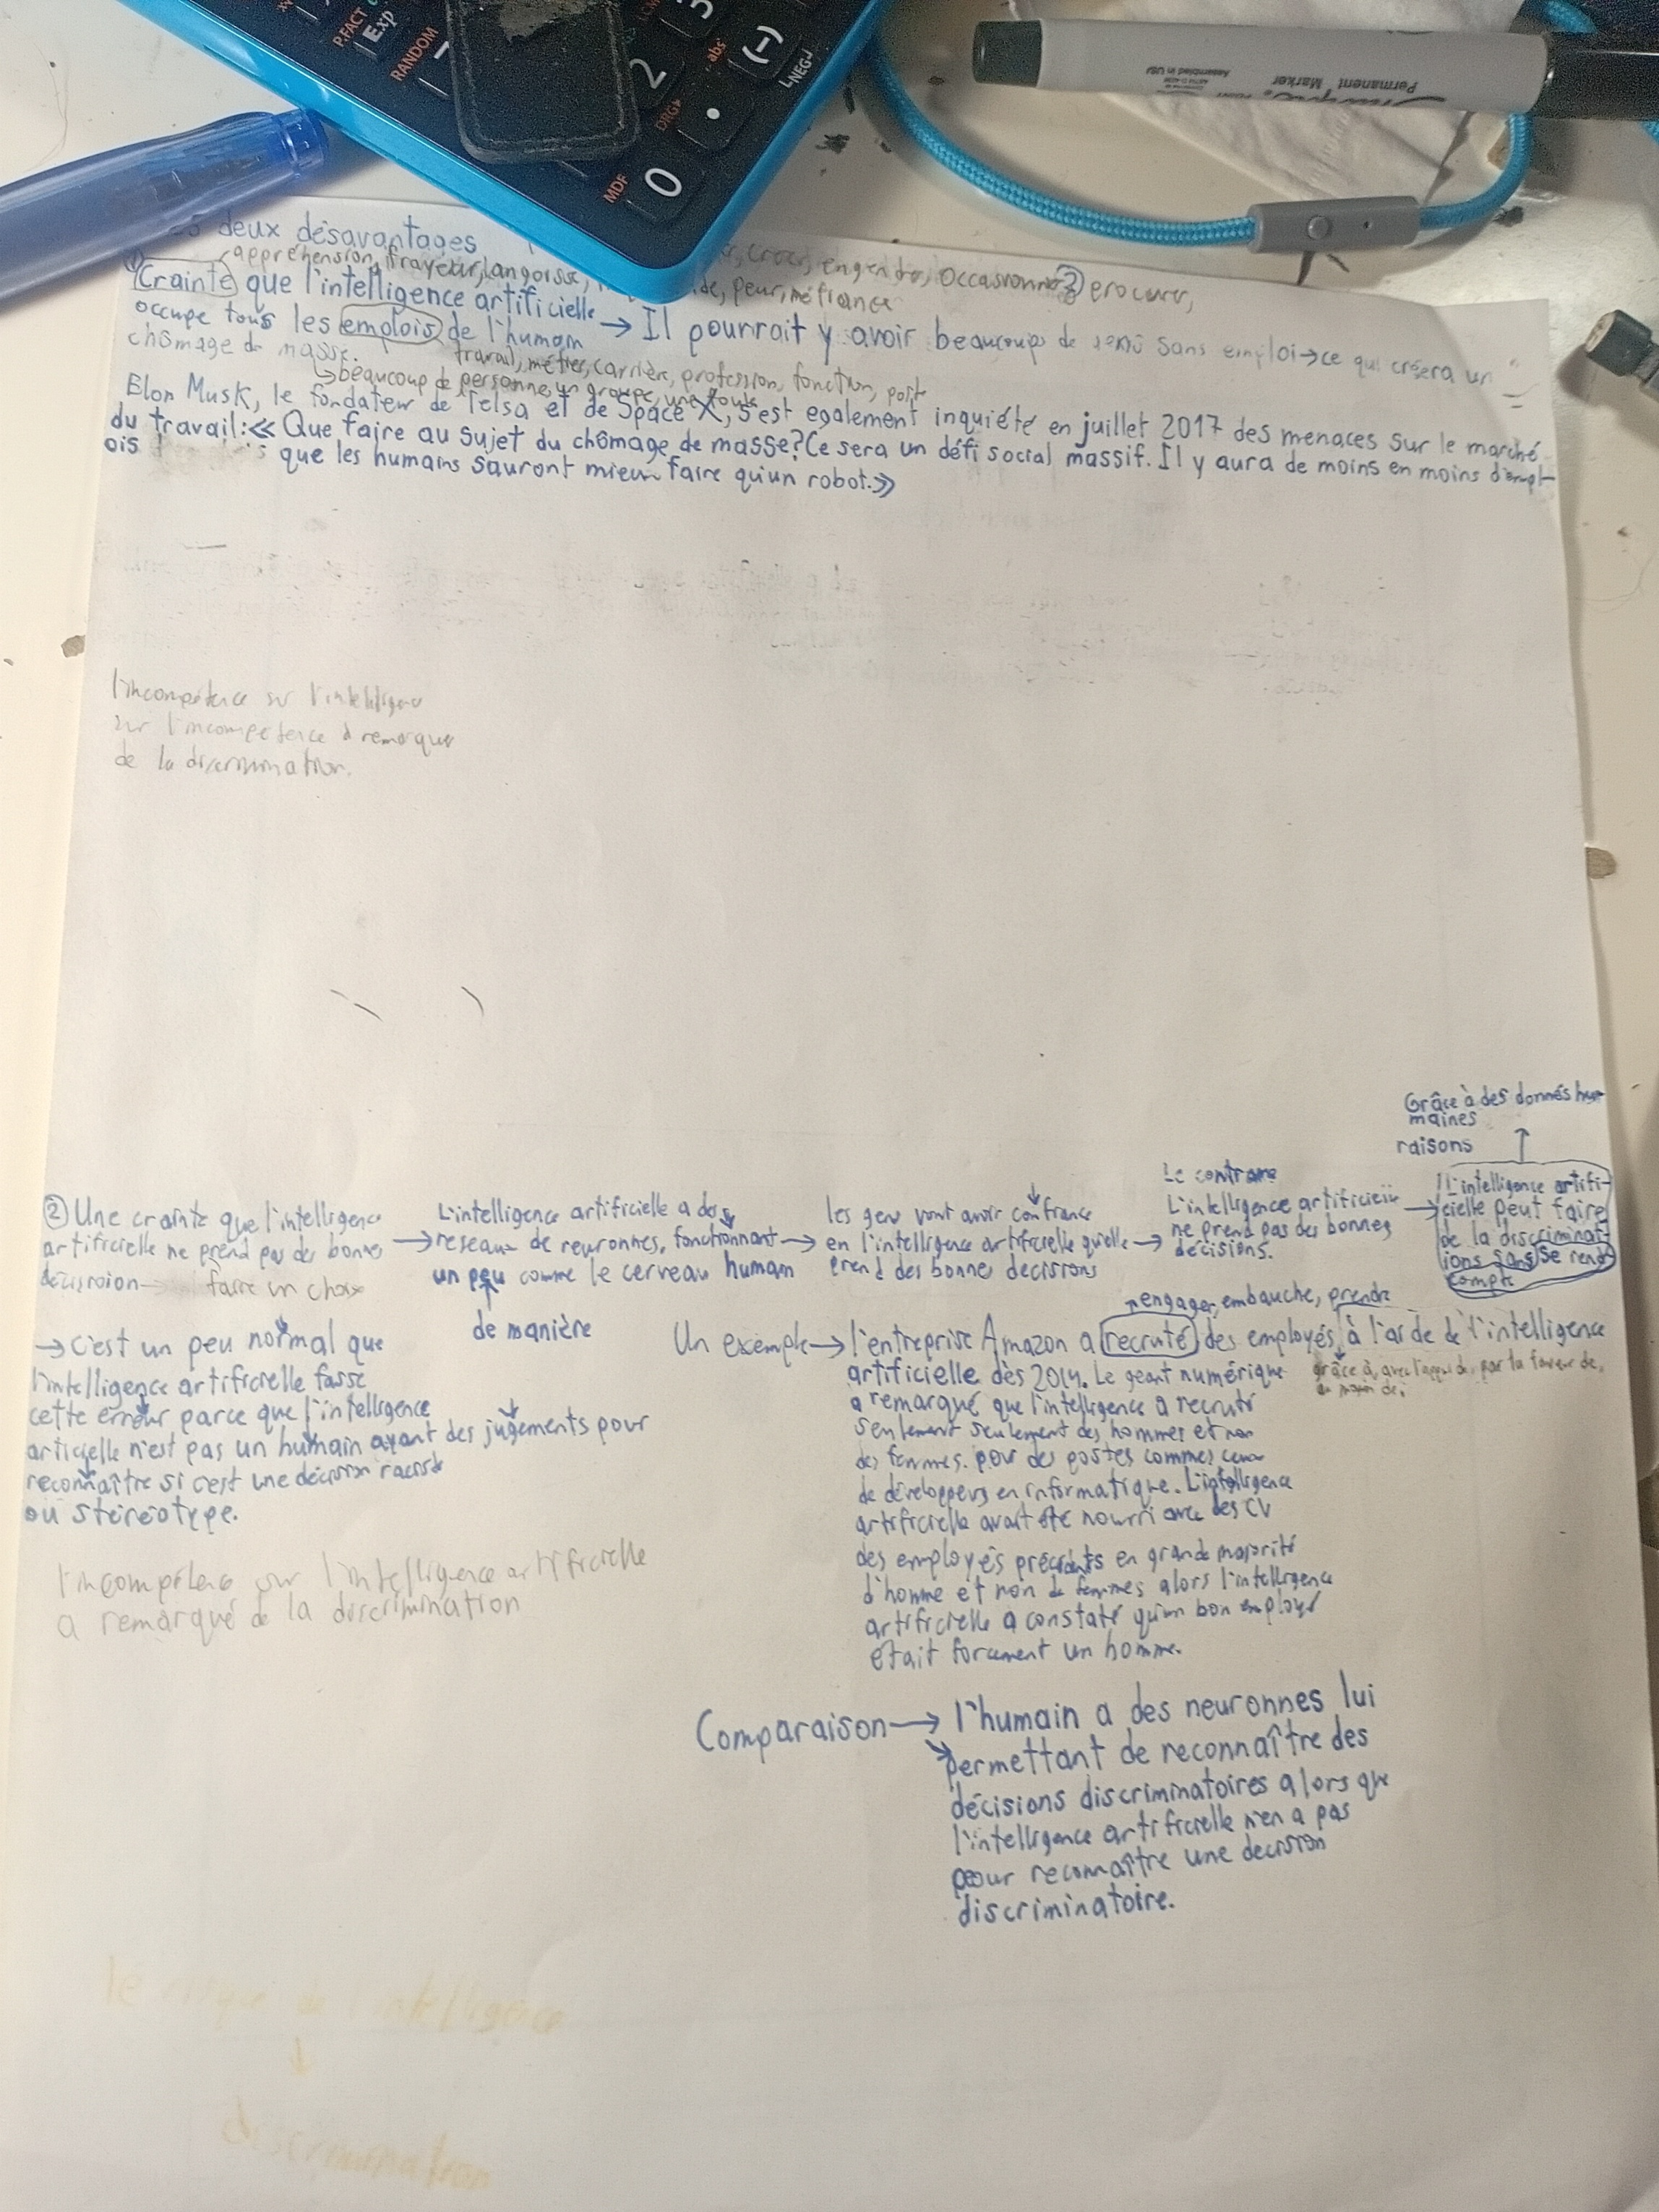 P.FACT
Exp
RANDOM
3
abs
(-)
NEG
2
DRG
.
MDF
0
Permanent Marker
Assembled in USA
deux désavantages
appréhension, frayeur, l'angoisse, peur, méfiance
créer, engendrer, occasionner, procurer,
① Crainte que l'intelligence artificielle
occupe tous les emplois de l'humain → Il pourrait y avoir beaucoup de sans emploi → ce qui créera un
chômage de masse.
travail, métier, carrière, profession, fonction, poste
↳ beaucoup de personne, un groupe, une foule
Elon Musk, le fondateur de Telsa et de Space X, s'est egalement inquiété en juillet 2017 des menaces sur le marché
du travail: << Que faire au sujet du chômage de masse? Ce sera un défi social massif. Il y aura de moins en moins d'empl-
ois que les humains sauront mieux faire qu'un robot. >>
l'incompétence sur l'intelligence
sur l'incompetence à remarquer
de la discrimination.
Grâce à des donnés hu-
maines
raisons
② Une crainte que l'intelligence
artificielle ne prend pas des bonnes
décision
faire un choix
L'intelligence artificielle a des
→ réseaux de neuronnes, fonctionnant →
un peu comme le cerveau humain
de manière
les gens vont avoir confiance
en l'intelligence artificielle qu'elle →
prend des bonnes decisions
Le contraire
L'intelligence artificielle
ne prend pas des bonnes →
décisions.
L'intelligence artifi-
cielle peut faire
de la discriminat-
ions sans se rend
compte
→ C'est un peu normal que
l'intelligence artificielle fasse
cette erreur parce que l'intelligence
articielle n'est pas un humain ayant des jugements pour
reconnaître si c'est une décision raciste
ou stéréotype.
l'incompétence sur l'intelligence artificielle
a remarqué de la discrimination
engager, embauche, prendre
Un exemple → l'entreprise Amazon a recruté des employés à l'aide de l'intelligence
artificielle dès 2014. Le geant numérique
grâce à, avec l'appui de, par la faveur de,
au moyen de,
a remarqué que l'intelligence a recruté
seulement seulement des hommes et non
des femmes. pour des postes commes ceux
de développeurs en informatique. L'intelligence
artificielle avait été nourri avec des CV
des employés précédents en grande majorité
d'homme et non de femmes alors l'intelligence
artificielle a constaté qu'un bon employé
était forcement un homme.
Comparaison → l'humain a des neuronnes lui
permettant de reconnaître des
décisions discriminatoires alors que
l'intelligence artificielle n'en a pas
pour reconnaître une decision
discriminatoire.
l'intelligence
↓
discrimination